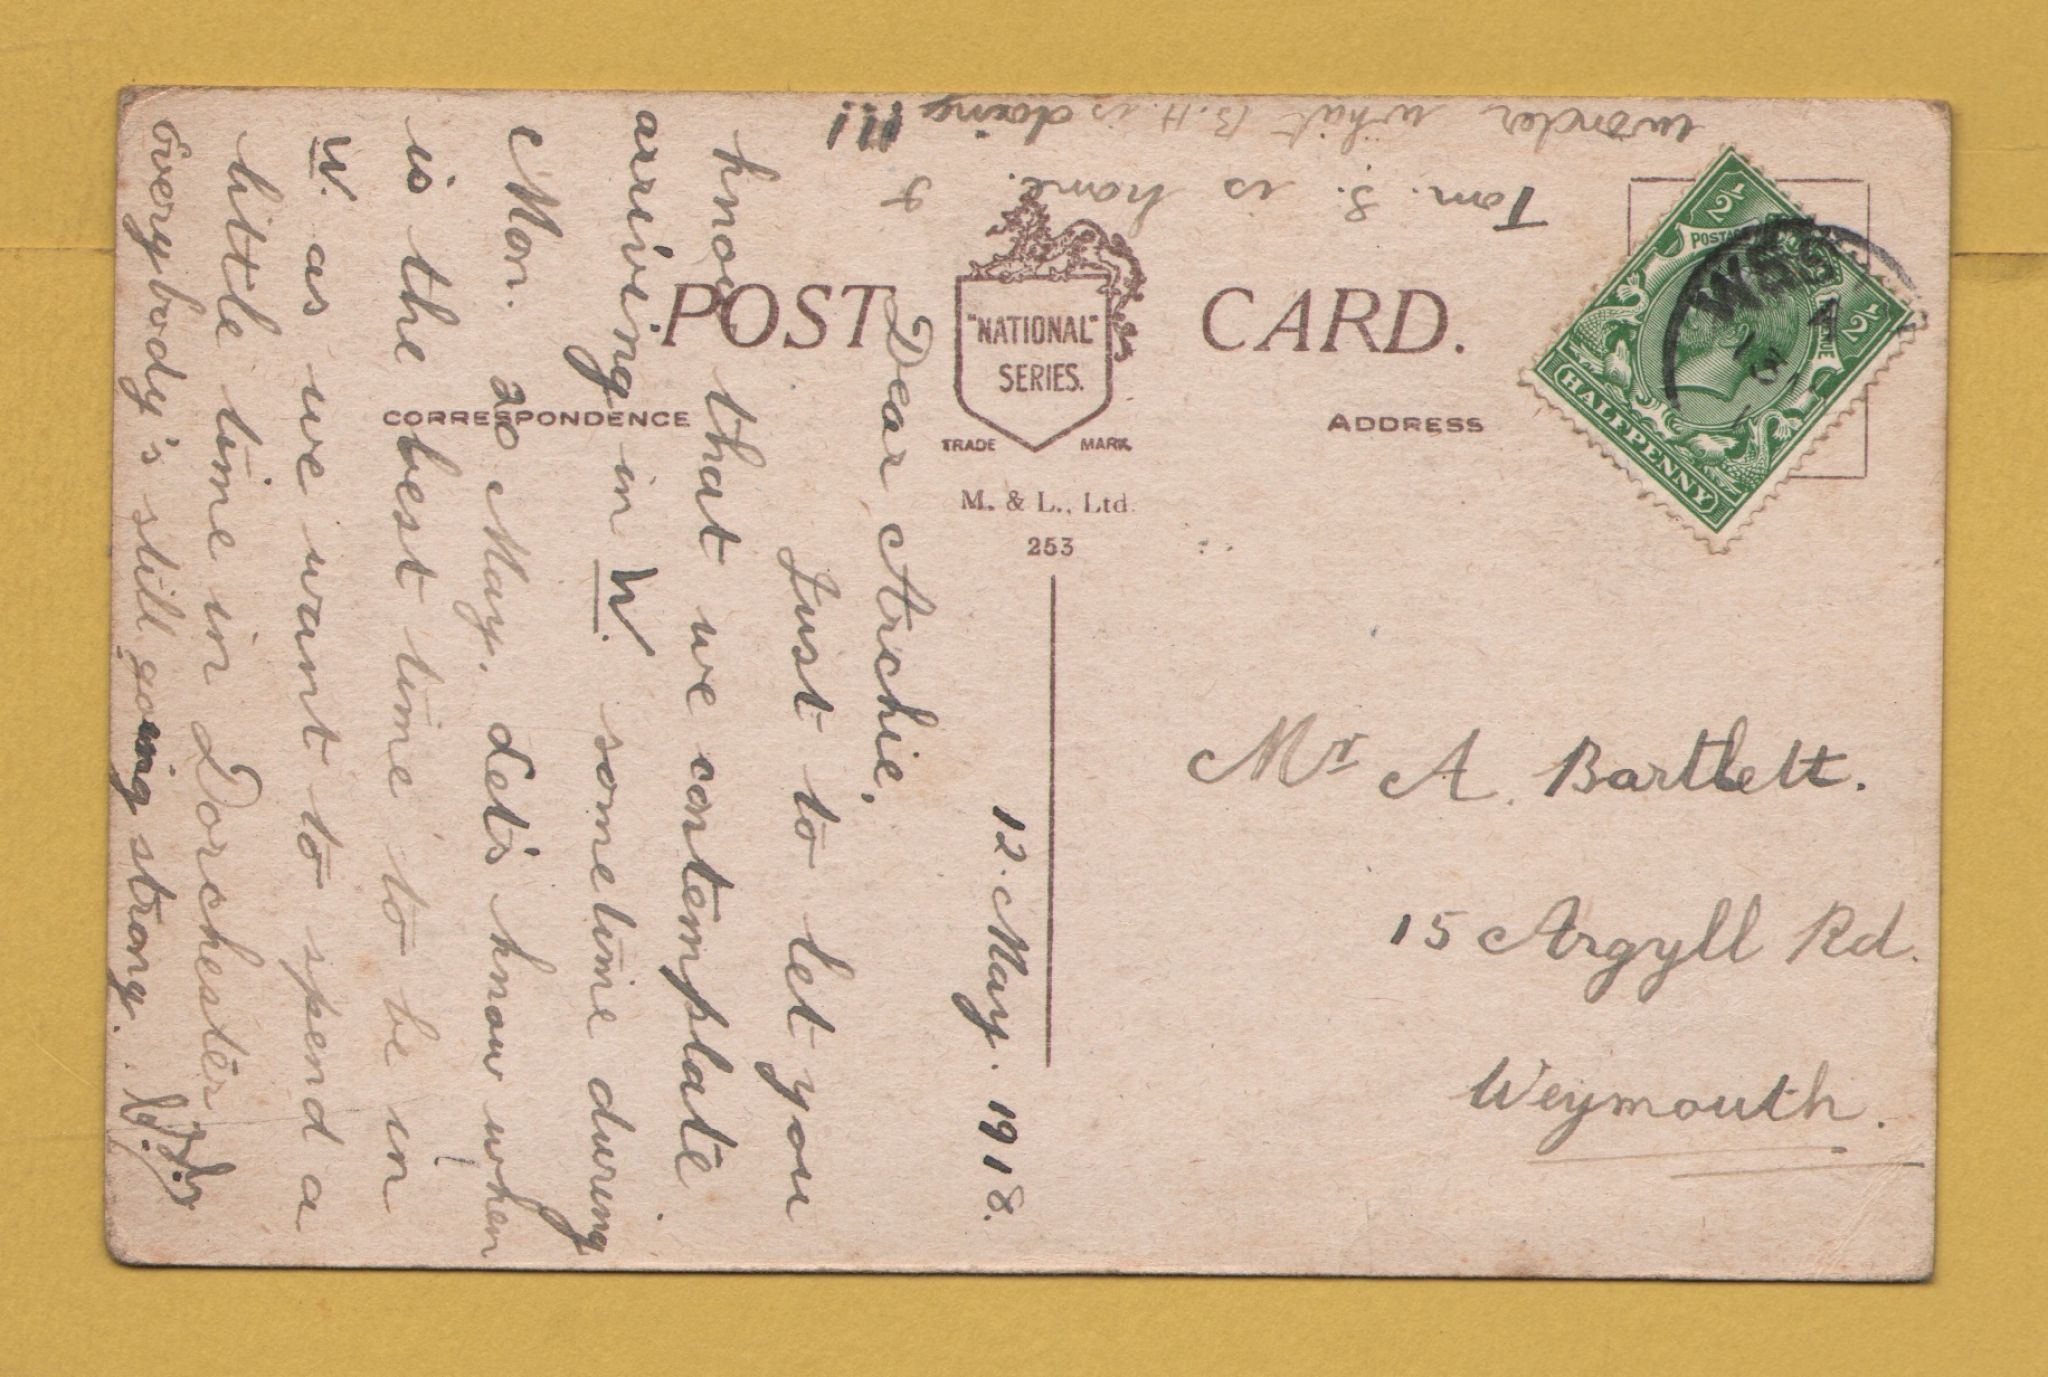 POST CARD.
"NATIONAL"
SERIES.
TRADE MARK
M. & L., Ltd.
253
CORRESPONDENCE
ADDRESS
POSTAGE
HALFPENNY
½
½
12. May. 1918.
Dear Archie,
Just to let you
know that we contemplate
arriving in W. sometime during
Mon. 20 May. Let's know when
is the best time to be in
W. as we want to spend a
little time in Dorchester
Everybody's still going strong.
Tom. S. is home. I
wonder what B.H. is doing !!!
Mr A. Bartlett.
15 Argyll Rd.
Weymouth.